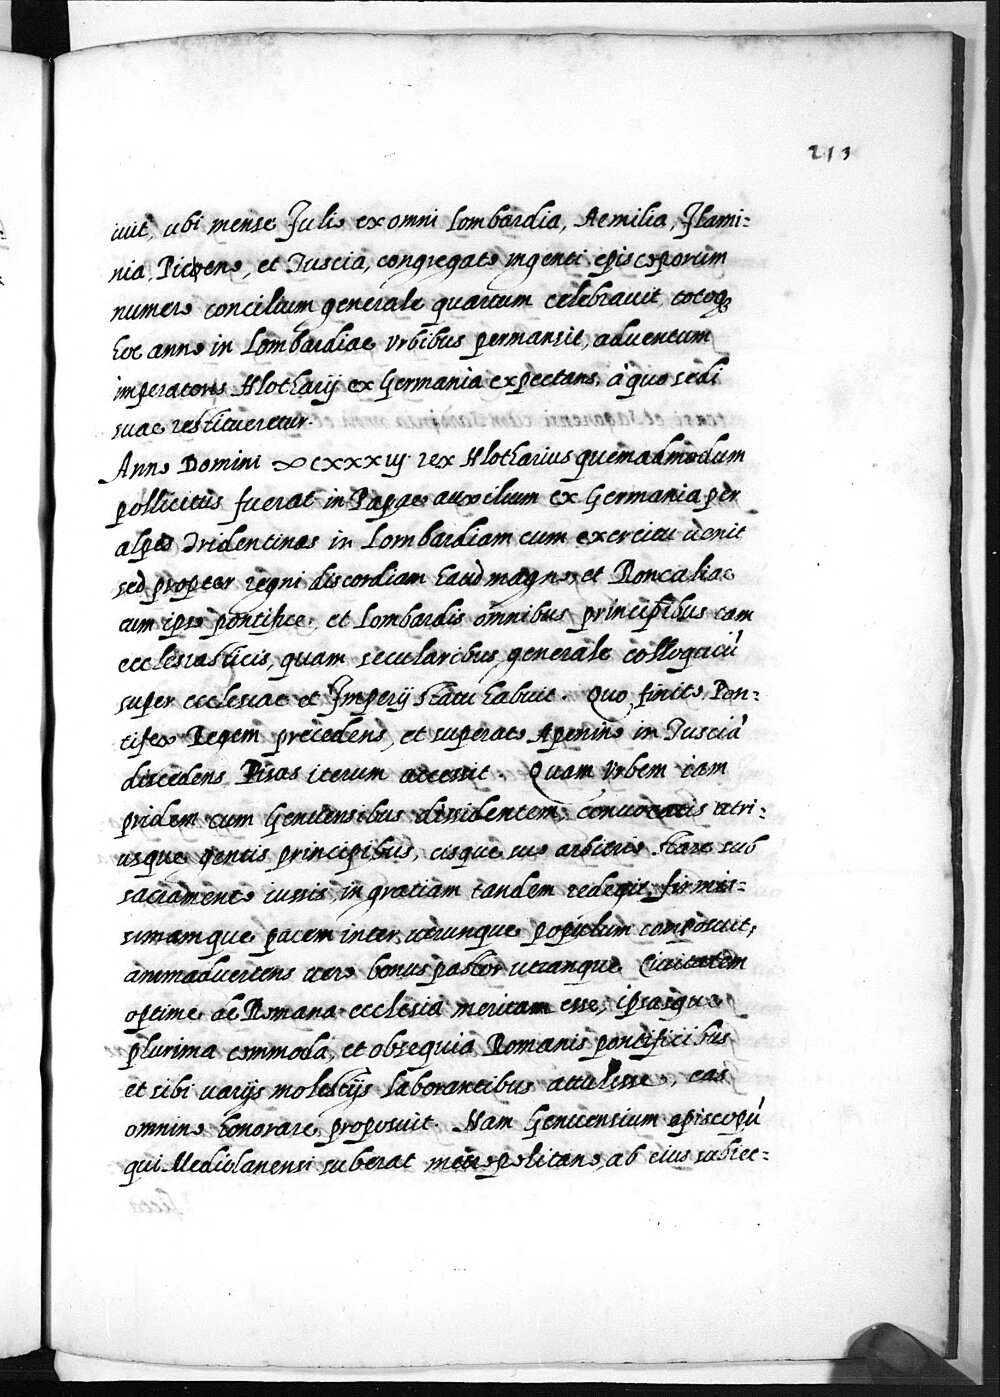 213
iuit, ubi mense Julio ex omni Lombardia, Aemilia, Flami:
nia, Piceno, et Tuscia, congregato ingenti episcoporum
numero concilium generale quartum celebrauit, totoq3
hoc anno in Lombardiae Vrbibus permansit, aduentum
imperatoris Hlotharij ex Germania expectans, à quo sedi
suae restitueretur.
Anno Domini ∞cxxxiij rex Hlotharius quemadmodum
pollicitus fuerat in Papae auxilium ex Germania per
alpes Tridentinas in Lombardiam cum exercitu uenit
sed propter regni discordiam haud magno et Roncaliae
cum ipso pontifice, et Lombardis omnibus principibus tam
ecclesiasticis, quam secularibus, generale colloquiū
super ecclesiae et Imperij statu habuit. Quo finito, Pon:
tifex Regem precedens, et superato Apenino in Tusciā
discedens Pisas iterum accessit. Quam Vrbem iam
pridem cum Genuensibus dissidentem, conuocatis utri:
usque gentis principibus, eisque suo arbitrio stare sub
sacramento iussis, in gratiam tandem redegit, firmis:
simamque pacem inter utrunque populum composuit,
animaduertens uero bonus pastor utranque Ciuitatem
optime de Romana ecclesia meritam esse, ipsasque
plurima commoda, et obsequia Romanis pontificibus
et sibi uarijs molestijs laborantibus attulisse, eas
omnino honorare proposuit. Nam Genuensium episcopū
qui Mediolanensi suberat metropolitano, ab eius subiec: